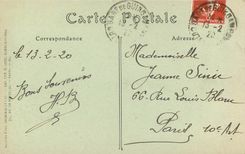 Carte Postale
Correspondance
Adresse
le 13.2.20
Mademoiselle
Bons Souvenirs
Jeanne Sinié
66 Rue Louis Blanc
Paris 10e Art